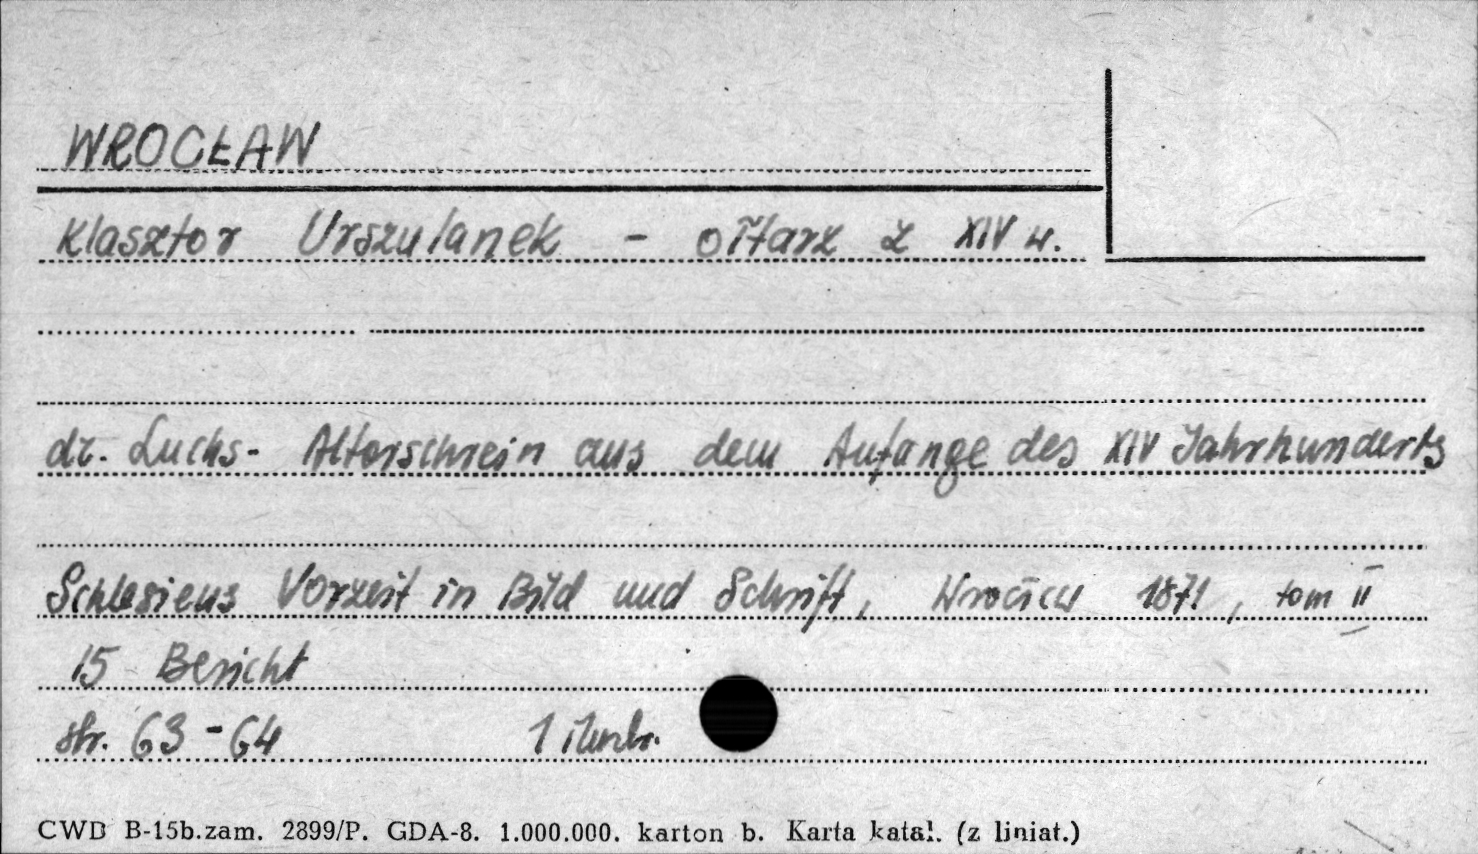 WROCŁAW
Klasztor Urszulanek - ołtarz z XIV w.
dr. Luchs - Altarschrein aus dem Anfange des XIV Jahrhunderts
Schlesiens Vorzeit in Bild und Schrift, Wrocław 1871, tom II
15 Bericht
str. 63-64 1 ilustr.
CWD B-15b.zam. 2899/P. GDA-8. 1.000.000. karton b. Karta katal. (z liniat.)